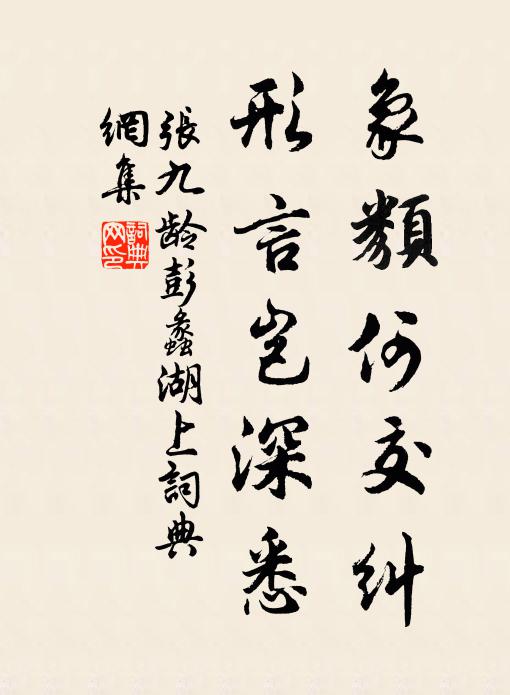 象類何交糾
形言豈深悉
張九龄彭蠡湖上詞典
網集
詞典
网印